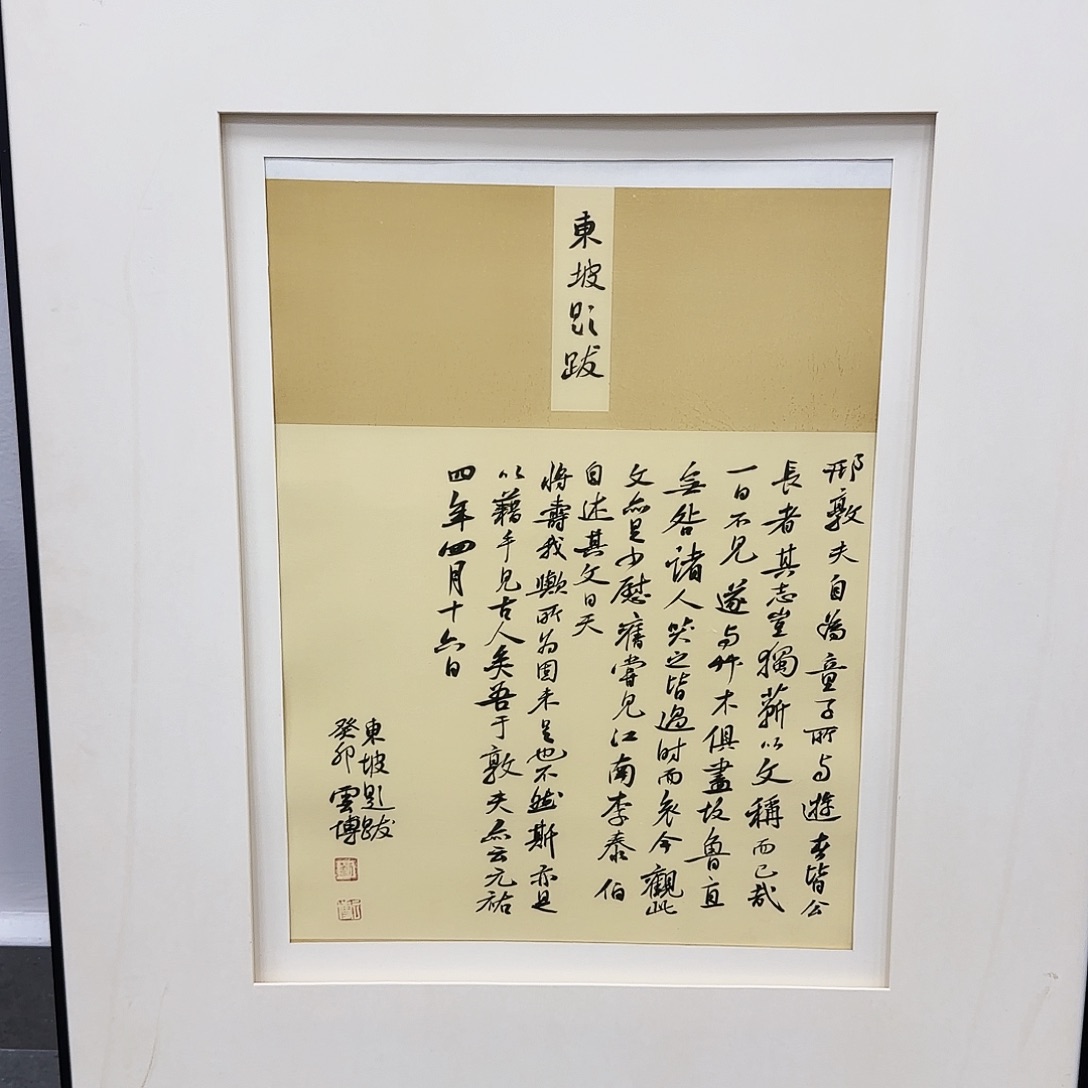 東坡題跋
邢敦夫自為童子所与遊者皆公
長者其志豈獨蘄以文稱而已哉
一日不見遂与艸木俱盡故魯直
無咎諸人哭之皆過時而哀今觀此
文亦足少慰舊嘗見江南李泰伯
自述其文曰天
將壽我歟所為固未足也不然斯亦足
以藉手見古人矣吾于敦夫亦云元祐
四年四月十六日
東坡題跋
癸卯雲博